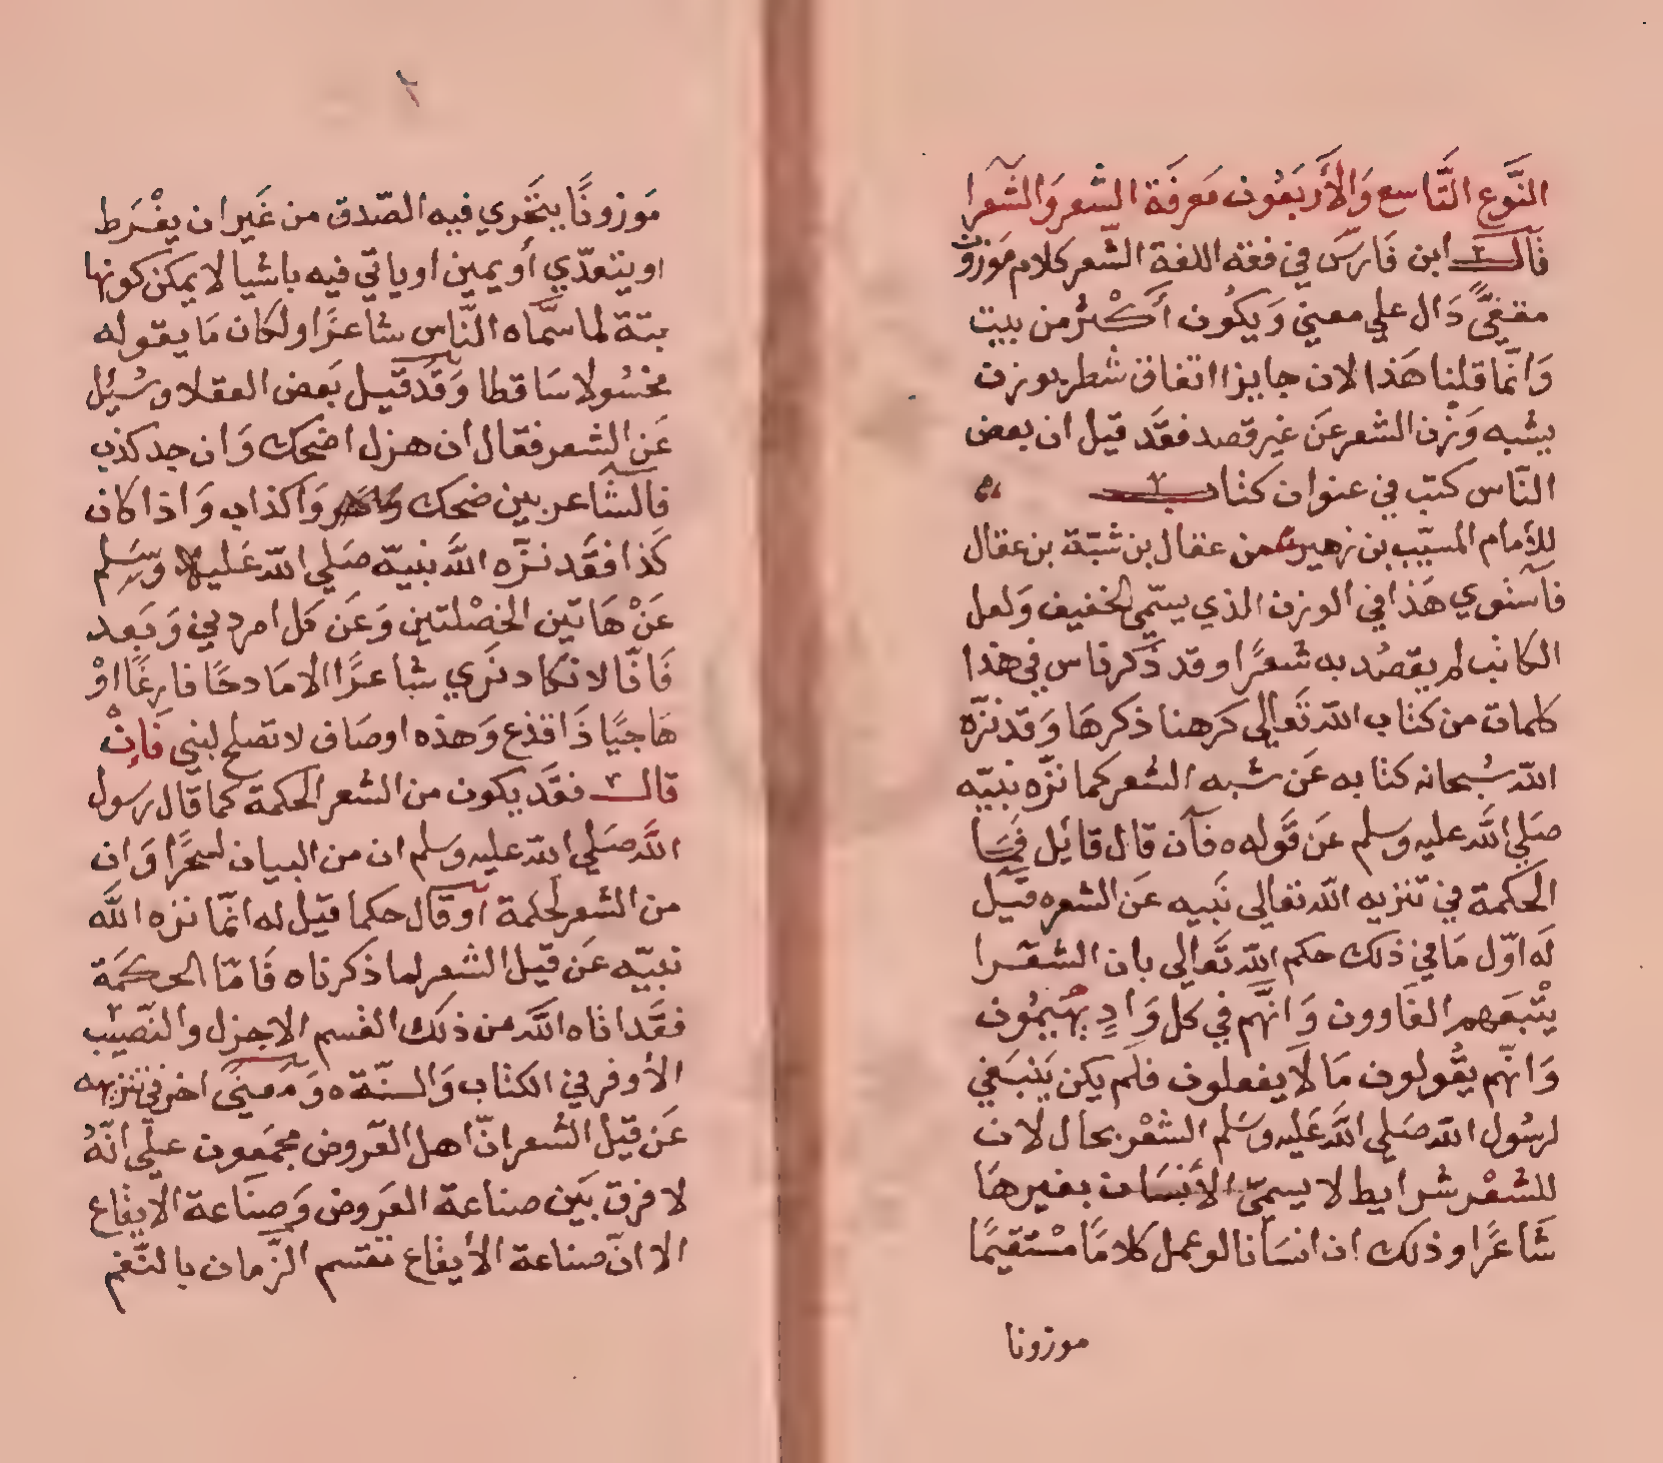 النَّوع التَّاسع وَالأَربَعُون مَعرفَة الشّعر وَالشّعَرا
قَال ابن فَارسَ في فقه اللغة الشّعر كلام مَوزون
مقفيًّ دَال علي معني وَيكُون أَكْثر من بيت
وَانّما قلنا هَذا لان جايزا اتفاق شطر بوزن
يشبه وَزْن الشعر عَن غير قصد فقَد قيل ان بعض
النّاس كتب في عنوان كتاب
للأمام المسيّب بن زهير من عقال بن شبّة بن عقال
فآستوي هَذا في الوزن الذي يسمّي الخفيف وَلعل
الكاتب لم يقصُد به شعرًا وقد ذَكر ناس في هذا
كلمات من كتاب الله تَعالي كَرهنا ذكرهَا وَقد نزّه
الله سُبحانه كتابه عَن شبه الشعر كما نزّه نبيّه
صَلي اللَّه عليه وسلم عَن قَوله ه فآن قال قائل فمَا
الحكمة في تنزيه الله تعالي نَبيه عَن الشعر ه قيل
لَه اوّل مَا في ذلك حكم اللَّه تَعالي بان الشعَرا
يتْبعَهم الغَاوون وَانَّهم في كل وَادٍ يَهيمُون
وَانّهم يَقُولون مَا لَا يفعلون فلَم يكن يَنبَغي
لرسُول الله صَلي اللَّه عَليه وسَلم الشعْر بحال لان
للشعْر شرايط لا يسمّي الأنسَان بغيرهَا
شَاعرًا وذلك ان انسَانا لو عمل كلامًا مسْتقيمًا
موزونا
٢
مَوزونًا يتحَري فيه الصّدق من غَير ان يفْرَط
او يتعدّي أو يمين او ياتي فيه باشيا لا يمكن كونها
بتة لما سمَّاه النّاس شاعرًا ولكان مَا يقوله
مخسُولا سَاقطا وَقَد قيل بَعض العقلا وسُئيل
عَن الشعر فقال ان هزل اضحك وَان جد كذب
فالشّاعر بين ضحَك وَاكذاب وَاذا كان
كَذا فقَد نزّه اللَّه نبيّه صَلي اللّه عَليه وسَلم
عَنْ هَاتَين الخصْلتين وَعَن كل امر دني وَبَعد
فَانّا لا نكاد نَري شاعرًا الا مَادحًا فارغًا اوْ
هَاجيًا ذَا قذع وَهَذه اوصَاف لا تصلح لنبي فَإنْ
قال فقَد يكون من الشعر الحكمة كما قَال رسول
اللَّه صَلي الله عليه وسلم ان من البيان لسحرًا وَان
من الشعر لَحكمة اَو قَال حكما قيل له انّما نزه اللَّه
نبيّه عَن قيل الشعر لما ذكرناه فَامّا الحكمَة
فقَد اتاه اللَّه من ذلك القسم الاجزل والنّصيب
الأوفر في الكتاب وَالسنّة ه وَمَعنَي اخر في تنزيهه
عَن قيل الشعر انّ اهل العَروض مجمعون علي انّهُ
لا فرق بَين صناعة العَروض وَصنَاعة الايقاع
الا انّ صناعة الأيقاع تقسم الزّمان بالنّغم